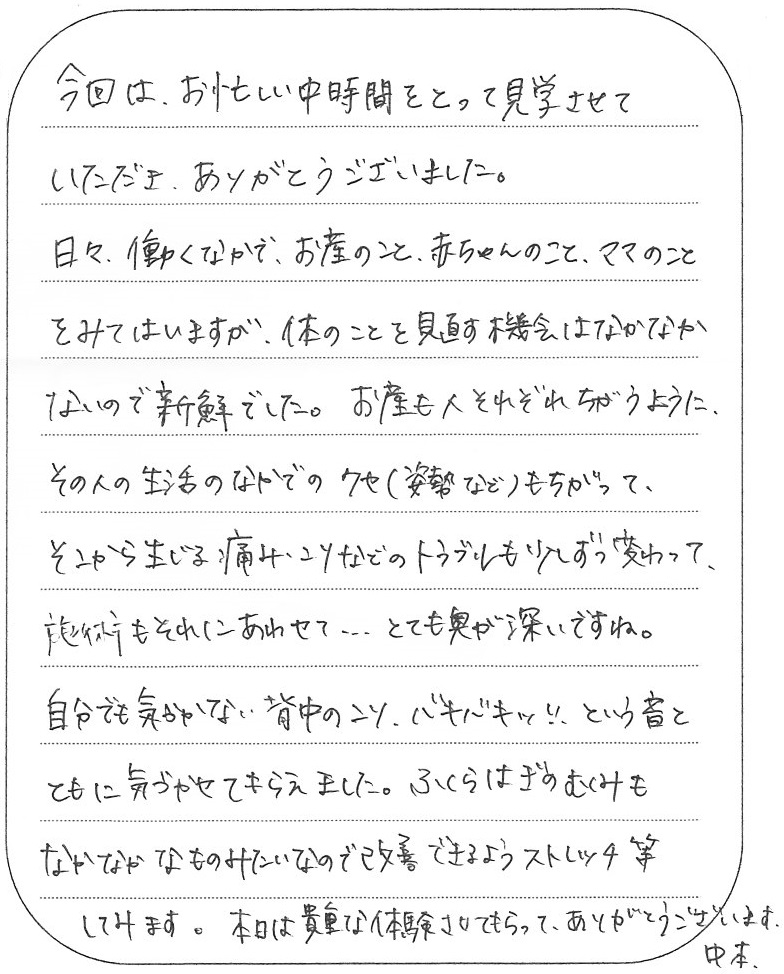 今回は、お忙しい中時間をとって見学させて
いただき、ありがとうございました。
日々、働くなかで、お産のこと、赤ちゃんのこと、ママのこと
をみてはいますが、体のことを見直す機会はなかなか
ないので新鮮でした。お産も人それぞれちがうように、
その人の生活のなかでのクセ(姿勢など)もちがって、
そこから生じる痛み・コリなどのトラブルも少しずつ変わって、
施術もそれにあわせて…とても奥が深いですね。
自分でも気づかない背中のコリ、バキバキッ!!という音と
ともに気づかせてもらえました。ふくらはぎのむくみも
なかなかなものみたいなので改善できるようストレッチ等
してみます。本日は貴重な体験させてもらって、ありがとうございます。
中本.